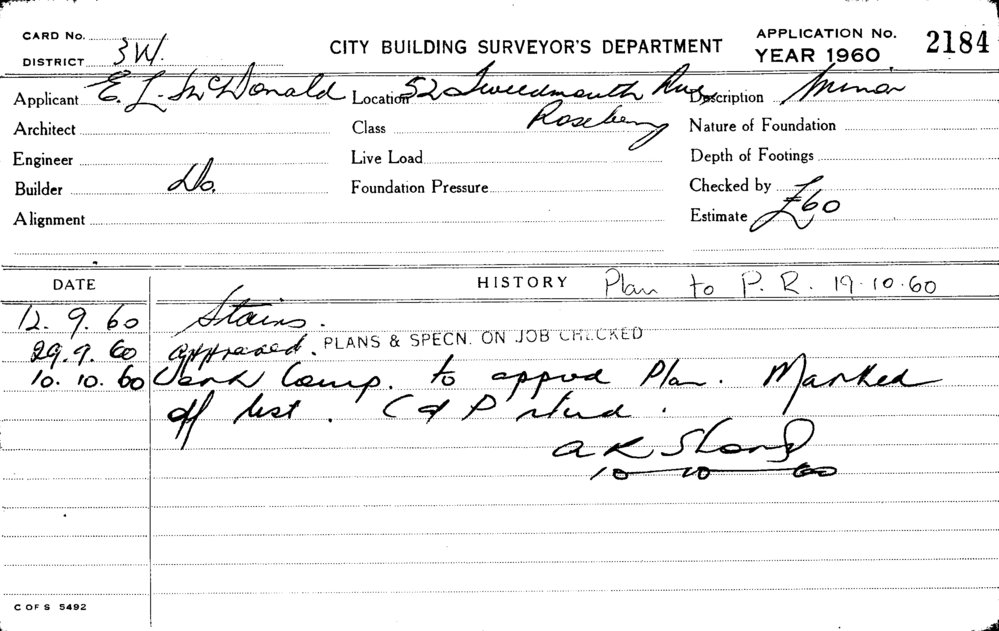 CARD No.
DISTRICT 3W.
CITY BUILDING SURVEYOR'S DEPARTMENT
APPLICATION No. 2184
YEAR 1960
Applicant E. L. McDonald Location 52 Tweedmouth Ave, Description Minor
Architect Class Rosebery Nature of Foundation
Engineer Live Load Depth of Footings
Builder Do. Foundation Pressure Checked by
Alignment Estimate £60
DATE HISTORY Plan to P. R. 19.10.60
12. 9. 60 Stairs.
29. 9. 60 Approved. PLANS & SPECN. ON JOB CHECKED
10. 10. 60 Work Comp. to appvd Plan. Marked
off list. C & P rtnd.
A K
10 10 60
C OF S 5492